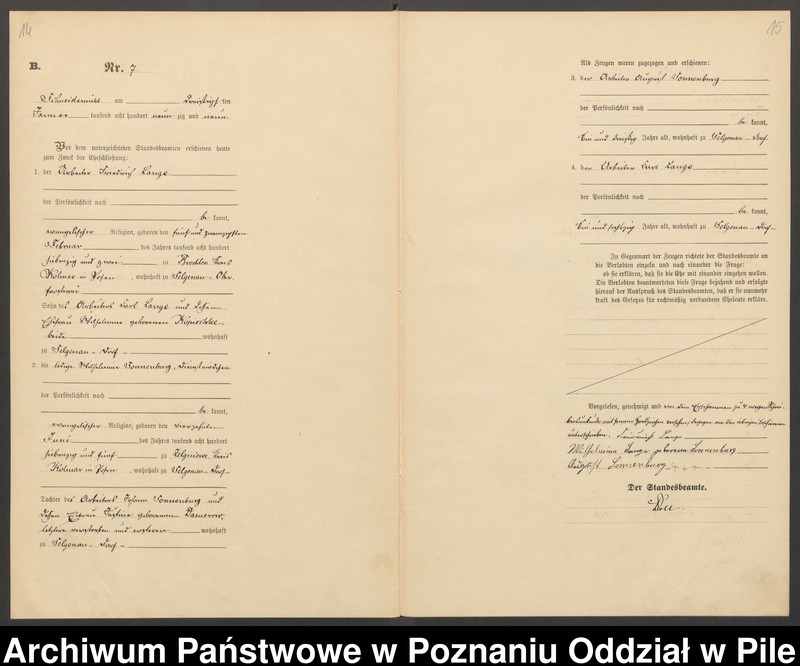 14
B. Nr. 7
Schneidemühl am dreißigsten
Januar tausend acht hundert neunzig und neun.
Vor dem unterzeichneten Standesbeamten erschienen heute
zum Zweck der Eheschließung:
1. der Arbeiter Friedrich Lange
der Persönlichkeit nach
be kannt,
evangelischer Religion, geboren den fünf und zwanzigsten
Februar des Jahres tausend acht hundert
siebenzig und zwei zu
Kolmar in Posen, wohnhaft zu Selgenau-Ober-
försterei
Sohn des Arbeiters Karl Lange und dessen
Ehefrau Wilhelmine geborenen
beide wohnhaft
zu Selgenau-Dorf
2. die ledige Wilhelmine Sonnenburg, Dienstmädchen
der Persönlichkeit nach
be kannt,
evangelischer Religion, geboren den vierzehnten
Juni des Jahres tausend acht hundert
siebenzig und fünf zu Kreis
Kolmar in Posen, wohnhaft zu Selgenau-Dorf
Tochter des Arbeiters Johann Sonnenburg und
dessen Ehefrau Justine geborenen Damerow,
letztere verstorben und ersterer wohnhaft
zu Selgenau-Dorf
15
Als Zeugen waren zugezogen und erschienen:
3. der Arbeiter August Sonnenburg
der Persönlichkeit nach
be kannt,
ein und dreißig Jahre alt, wohnhaft zu Selgenau-Dorf
4. der Arbeiter Karl Lange
der Persönlichkeit nach
be kannt,
ein und sechzig Jahre alt, wohnhaft zu Selgenau-Dorf
In Gegenwart der Zeugen richtete der Standesbeamte an
die Verlobten einzeln und nach einander die Frage:
ob sie erklären, daß sie die Ehe mit einander eingehen wollen.
Die Verlobten beantworteten diese Frage bejahend und erfolgte
hierauf der Ausspruch des Standesbeamten, daß er sie nunmehr
kraft des Gesetzes für rechtmäßig verbundene Eheleute erkläre.
Vorgelesen, genehmigt und von dem Erschienenen zu 4 wegen Schrei-
bensunkunde mit seinem Handzeichen versehen, dagegen von den übrigen Erschienenen
unterschrieben. Friedrich Lange
Wilhelmine Lange geborene Sonnenburg
August Sonnenburg + + +
Der Standesbeamte.
Archiwum Państwowe w Poznaniu Oddział w Pile